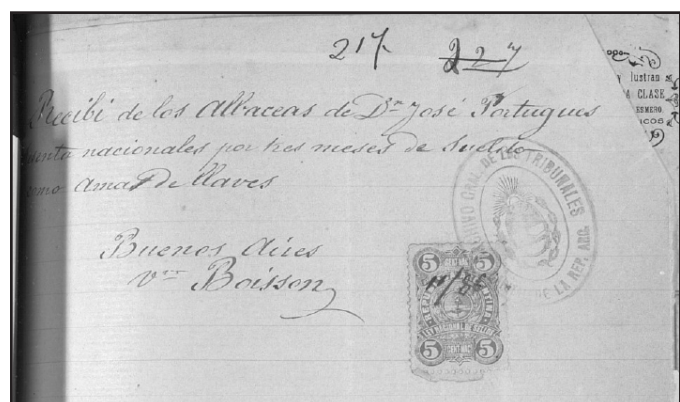 217. 227
Recibi de los Albaceas de Dn José Portugues
nacionales por tres meses de Sueldo
como Ama de llaves
Buenos Aires
Vve Boisson
ARCHIVO GRAL. DE LOS TRIBUNALES
DE LA REP. ARG.
5 5
5 5
lustran
A CLASE
ESMERO